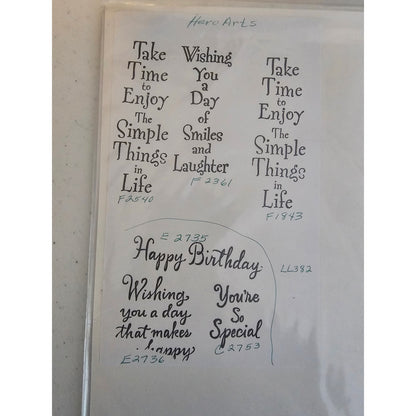 Hero Arts
Take
Time
to
Enjoy
The
Simple
Things
in
Life
F2540
Wishing
You
a
Day
of
Smiles
and
Laughter
F2361
Take
Time
to
Enjoy
The
Simple
Things
in
Life
F1843
E2735
Happy Birthday
LL382
Wishing
you a day
that makes
happy
E2736
You're
So
Special
C2753